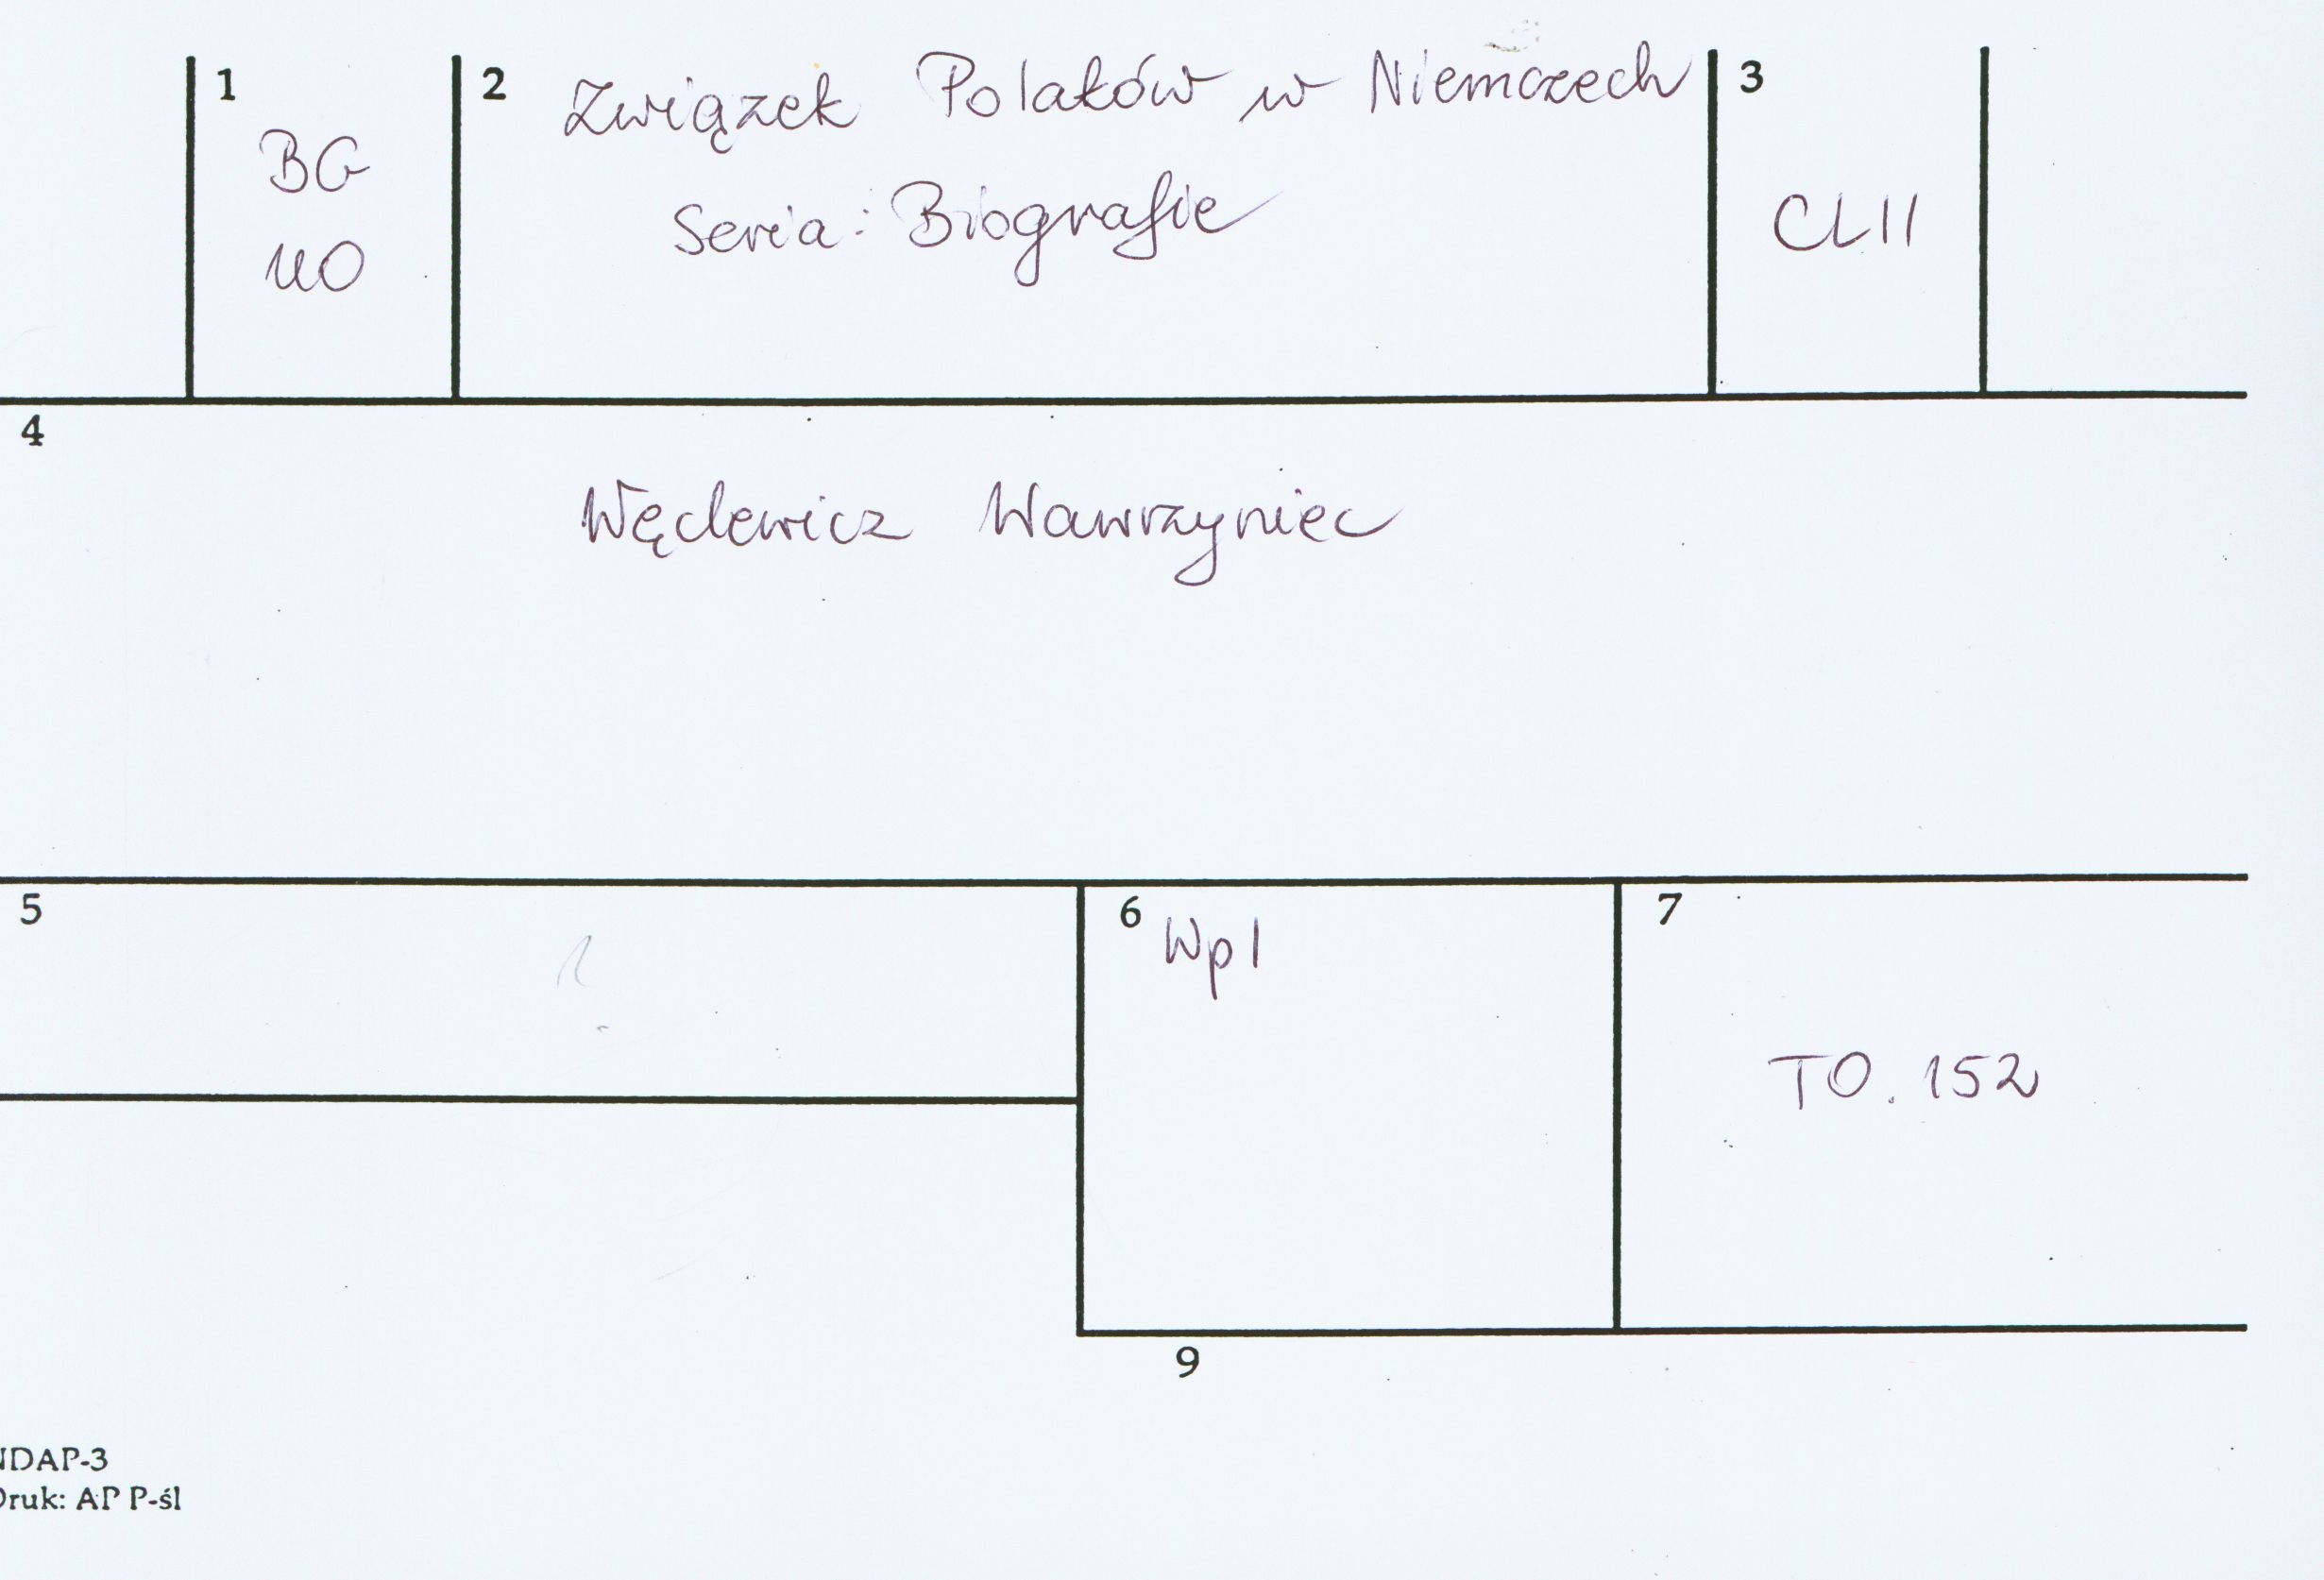 1
BG
UO
2 Związek Polaków w Niemczech
Seria: Biografie
3
CLII
4
Węclewicz Wawrzyniec
5
6 Wpl
7
TO. 152
9
NDAP-3
Druk: AP P-śl